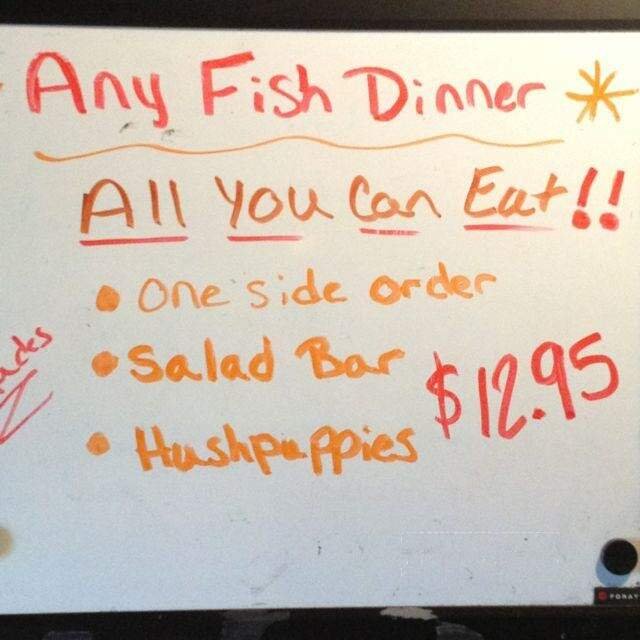 Any Fish Dinner *
All You Can Eat!!
• One side order
• Salad Bar
$12.95
• Hushpuppies